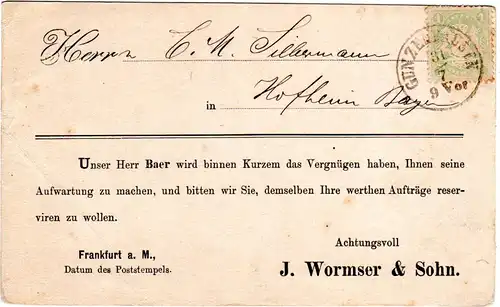 Herrn C. M. Silbermann
in
Hofheim Bayern
GUNZENHAUSEN
31
7
9 Vor
Unser Herr Baer wird binnen Kurzem das Vergnügen haben, Ihnen seine
Aufwartung zu machen, und bitten wir Sie, demselben Ihre werthen Aufträge reser-
viren zu wollen.
Achtungsvoll
Frankfurt a. M.,
Datum des Poststempels.
J. Wormser & Sohn.